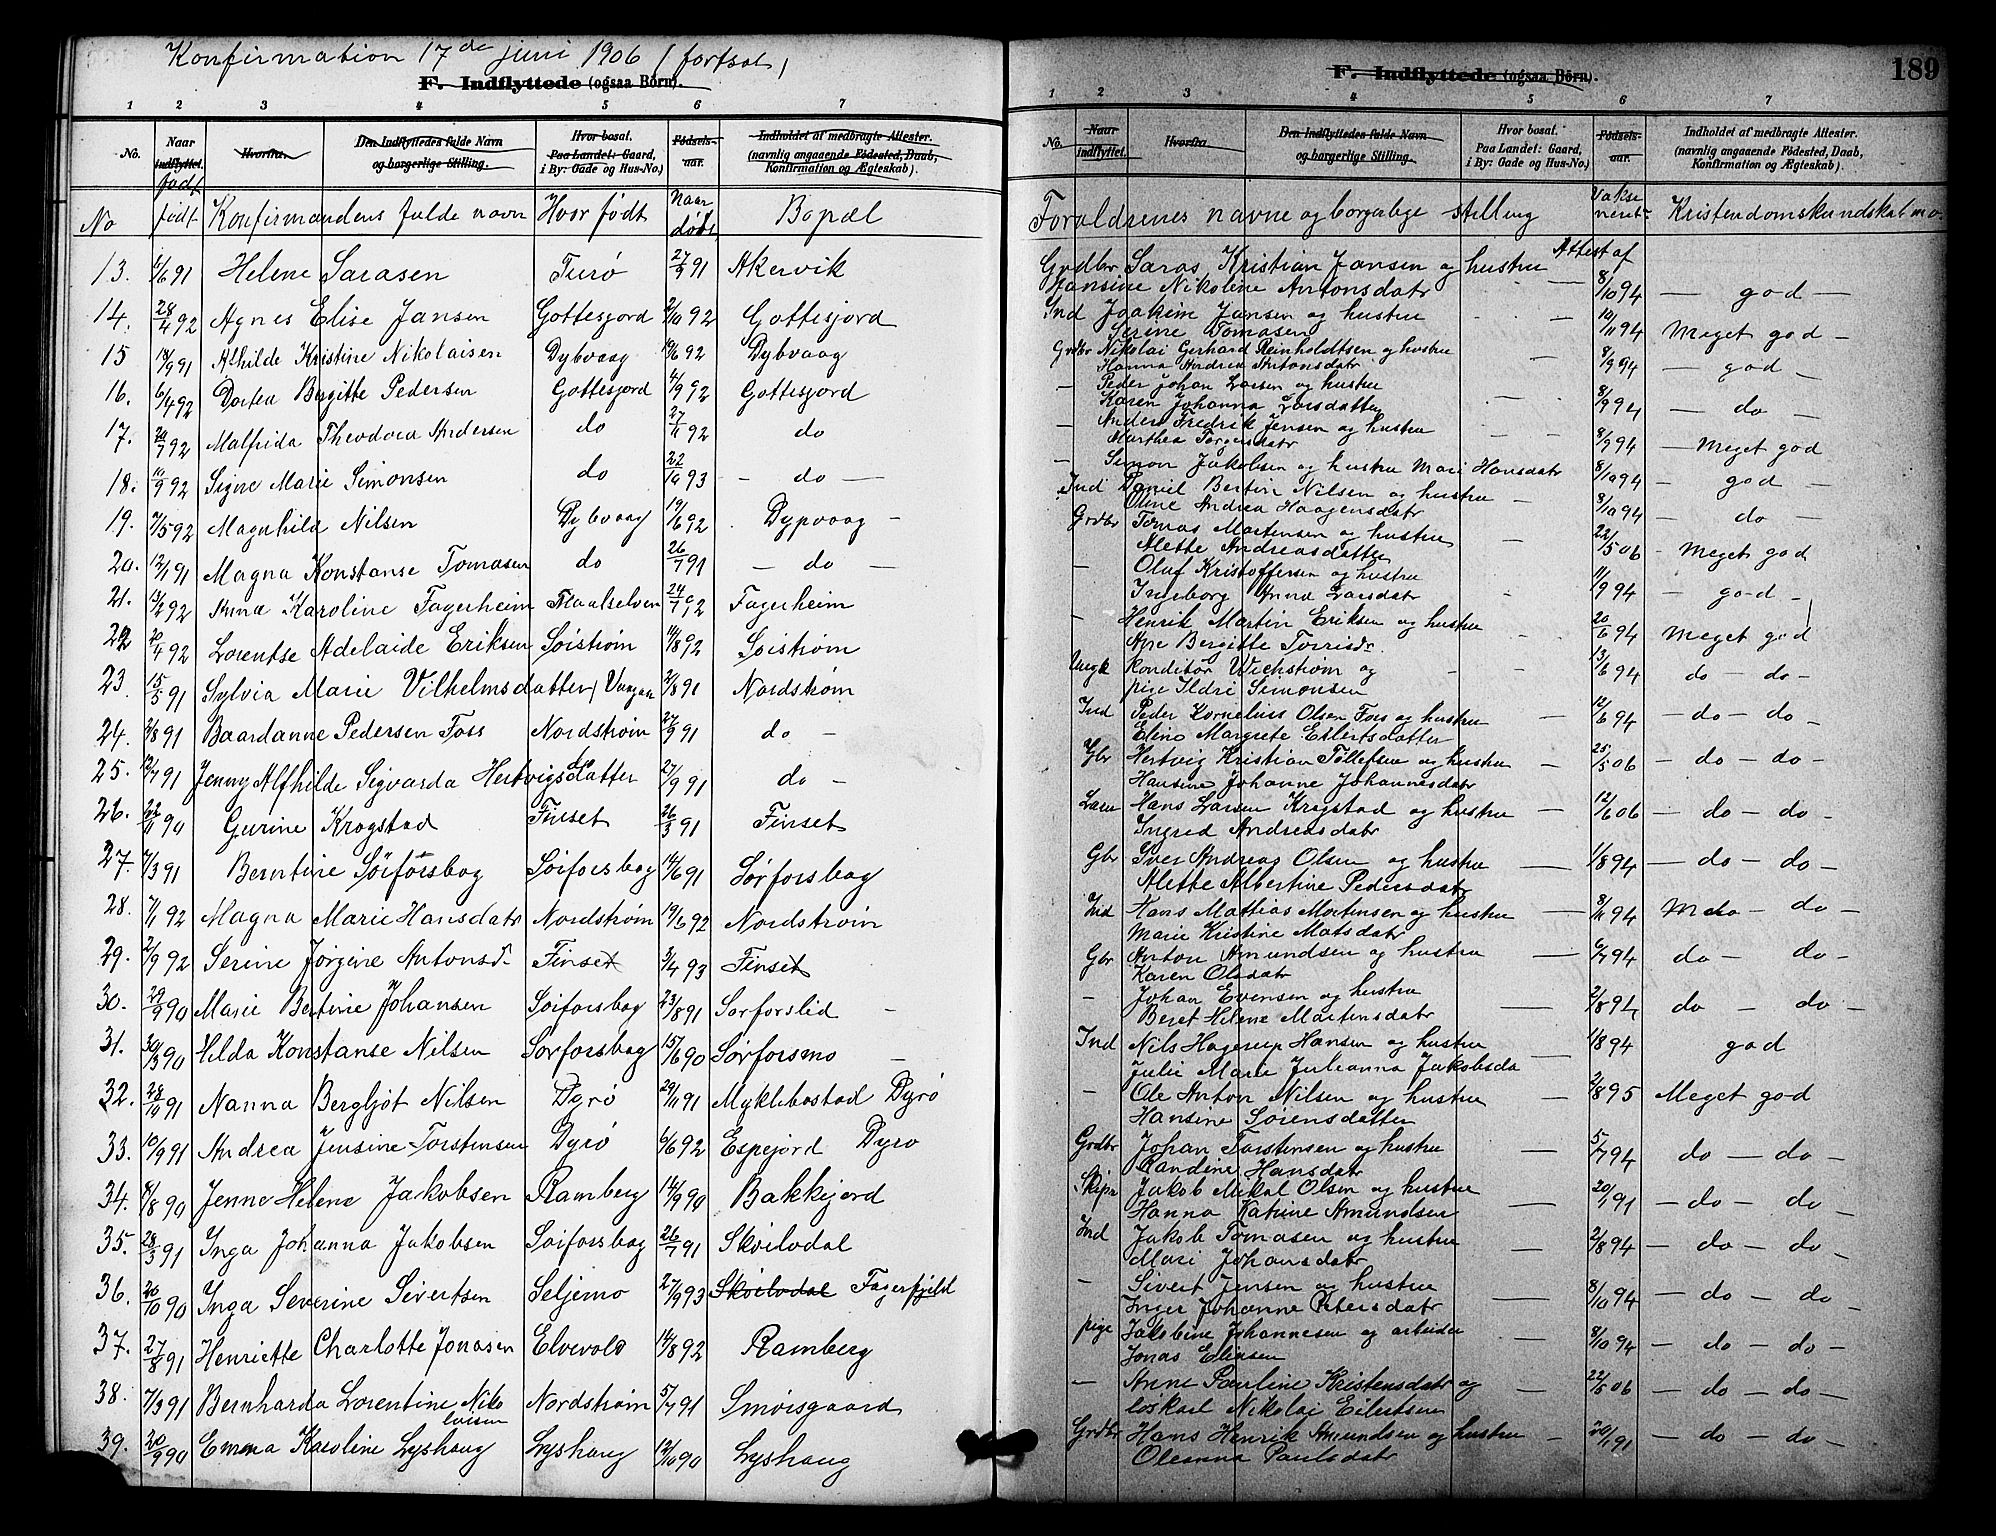 Konfirmation 17de juni 1906 (fortsat)
F. Indflyttede (ogsaa Börn).
1 2 3 4 5 6 7
No. Naar indflyttet. Hvorfra. Den Indflyttedes fulde Navn og borgerlige Stilling. Hvor bosat. Paa Landet: Gaard, i By: Gade og Hus-No.) Fødselsaar. Indholdet af medbragte Attester. (navnlig angaaende Födested, Daab, Konfirmation og Ægteskab).
No født Konfirmandens fulde navn Hvor født Naar døbt Bopæl
13. Helene Sarasen Turö 27/9 91 Akervik
14. 28/4 92 Agnes Elise Jansen Gottesjord 2/10 92 Gottesjord
15 18/9 91 Alhilde Kristine Nikolaisen Dybvaag 19/6 92 Dybvaag
16. 6/4 92 Dortea Bergitte Pedersen Gottesjord 4/9 92 Gottesjord
17. 20/7 92 Mathida Theodora Andersen do 27/11 92 do
18. 10/9 92 Signe Marie Simonsen do 22/10 93 - do -
19. 7/5 92 Magnhild Nilsen Dybvaag 19/6 92 Dypvaag -
20. 12/1 91 Magna Konstanse Tomasen do 26/7 91 - do -
21. 13/2 92 Anna Karoline Fagerheim Maalselven 24/7 92 Fagerheim
22 20/4 92 Lorentse Adelaide Eriksen Söistrøm 14/8 92 Söistrøm
23. 15/5 91 Sylvia Marie Vilhelmsdatter 2/8 91 Nordstrøm
24. 2/8 91 Baardanne Pedersen Foss Nordstrøm 27/9 91 do -
25. 12/7 91 Jenny Alfhilde Sigvarda Hertvigsdatter do 27/9 91 do -
26. 22/11 90 Gurine Krogstad Finset 26/3 91 Finset
27. 7/3 91 Berntine Sörforsbag Sörforsbag 14/6 91 Sørforsbag
28. 7/11 92 Magna Marie Hansdatr Nordstrøm 19/6 92 Nordstrøm
29. 2/9 92 Serine Jørgine Antonsd. Finset 3/4 93 Finset
30. 29/9 90 Marie Bertine Johansen Sörforsbag 23/8 91 Sorforslid -
31. 30/3 90 Hilda Konstanse Nilsen Sorforsbag 15/6 90 Sørforsmo -
32. 28/10 91 Nanna Bergljot Nilsen Dyrö 29/11 91 Myklebostad Dyrö
33. 10/9 91 Andrea Jensine Torstensen Dyrö 6/6 92 Espejord Dyro
34. 4/8 90 Jenne Helene Jakobsen Ramberg 14/9 90 Bakkejord
35. 28/3 91 Inga Johanna Jakobsen Sörforsbag 26/7 91 Skoilvdal
36. 20/10 90 Inga Severine Sivertsen Seljemo 27/9 93 Skoilvdal Fagerfjeld
37. 27/8 91 Henriette Charlotte Jonasen Elvevold 14/8 92 Ramberg
38. 7/3 91 Bernharda Lorentine Nikolaisen Nordstrøm 5/7 91 Smörsgaard
39. 20/9 90 Emma Karoline Lyshaug Lyshaug 12/10 90 Lyshaug
F. Indflyttede (ogsaa Börn). 189
1 2 3 4 5 6 7
No. Naar indflyttet. Hvorfra Den Indflyttedes fulde Navn og borgerlige Stilling. Hvor bosat. Paa Landet: Gaard, i By: Gade og Hus-No.) Fødselsaar. Indholdet af medbragte Attester. (navnlig angaaende Födested, Daab, Konfirmation og Ægteskab).
Foraldrenes navne og borgerlige stilling Vaksineret Kristendomskundskab m.v.
Grdbr Saras Kristian Jansen og hustru Attest af
Hansine Nikoline Antonsdatr - 8/10 94 - god -
Ind Joakim Jansen og hustru
Serine Tomasen 10/11 94 Meget god -
Grdbr Nikolai Gerhard Reinholdtsen og hustru
Hanna Andrea Antonsdatr - 8/9 94 - god -
- Peder Johan Larsen og hustru
Karen Johanna Larsdatter - 8/9 94 - do -
Anders Fredrik Jensen og hustru
Marthea Torgersdatr - 8/9 94 - Meget god
- Simon Jakobsen og hustru Mari Hansdatr 8/10 94 - god -
Ind Daniel Bertin Nilsen og hustru
Oline Andrea Haagensdatr - 8/10 94 - do -
Grdbr Tomas Martensen og hustru
Alette Andreasdatter - 22/5 06 - Meget god
- Oluf Kristoffersen og hustru
Ingeborg Anna Larsdatr - 11/9 94 - god -
- Henrik Martin Eriksen og hustru
Ane Bergitte Torrisdr. 20/6 94 Meget god
Ungk Konditor Wichstrøm og
pige Ildri Simonsen - 13/6 94 do - do -
Ind Peder Kornelius Olsen Foss og hustru
Elino Margrete Eilertsdatter - 12/6 94 - do - do -
Gbr Hertvig Kristian Tollefsen og hustru
Hansine Johanne Johannesdatr - 25/5 06 - do - do -
Hans Larsen Krogstad og hustru
Ingred Andreasdatr 12/6 06 - do - do -
Gbr Iver Andreas Olsen og hustru
Alette Albertine Pedersdatr - 1/8 94 - do - do -
Ind Hans Mattias Mortensen og hustru
Marie Kristine Matsdatr - 8/11 94 M do - do -
Gbr Anton Amundsen og hustru
Karen Olsdatr - 6/7 94 do - do -
- Johan Evensen og hustru
Beret Helene Martensdatr - 2/8 94 do - do -
Ind Nils Hagerup Hansen og hustru
Julie Marie Julianna Jakobsda - 1/8 94 god
- Ole Anton Nilsen og hustru
Hansine Sörensdatter - 2/8 95 Meget god
Grdbr Johan Torstensen og hustru
Randine Hansdatr - 5/7 94 do - do -
Skipr Jakob Mikal Olsen og hustru
Hanna Katrine Amundsen 20/1 91 - do - do -
Ind Jakob Tomasen og hustru
Mari Johansdatr - 2/8 94 - do - do -
- Sivert Jensen og hustru
Inger Johanne Petersdatr - 8/10 94 - do - do -
pige Jakobine Johannesen og arbeider
Jonas Eliasen - 8/10 94 - do - do -
- Anne Pauline Kristensdatr og
löskarl Nikolai Eilertsen - 22/5 06 - do - do -
Grdbr Hans Henrik Amundsen og hustru
Oleanna Paulsdatr - 20/1 91 - do - do -